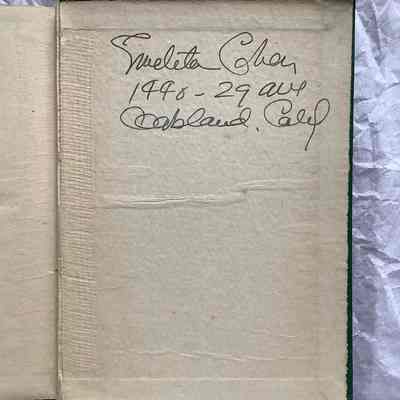 Emelita Cohen
1448 - 29 ave
Oakland, Calif